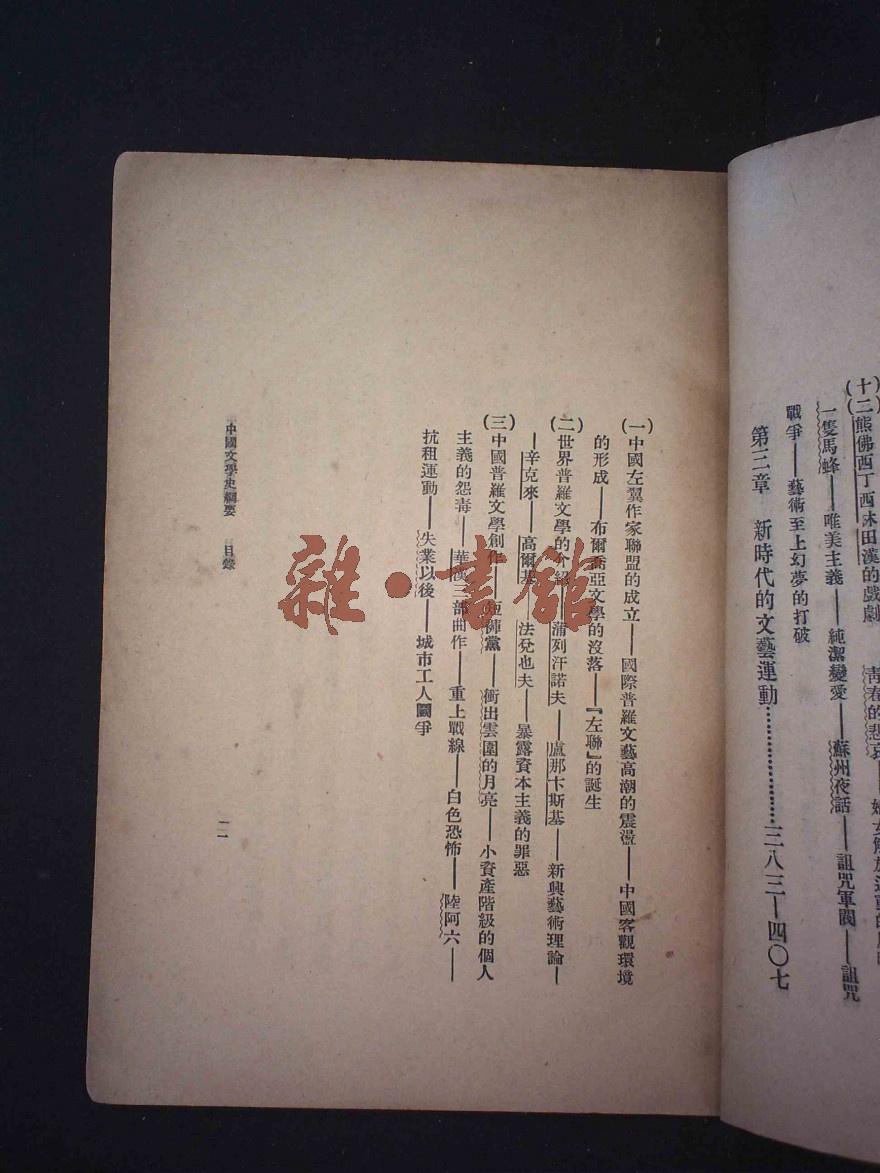 (十二)熊佛西丁西林田漢的戲劇　青春的悲哀——婦女解放運動的
一隻馬蜂——唯美主義——純潔變愛——蘇州夜話——詛咒軍閥——詛咒
戰爭——藝術至上幻夢的打破
第三章　新時代的文藝運動…………………三八三—四〇七
(一)中國左翼作家聯盟的成立——國際普羅文藝高潮的震盪——中國客觀環境
的形成——布爾喬亞文學的沒落——『左聯』的誕生
(二)世界普羅文學的介紹——蒲列汗諾夫——盧那卡斯基——新興藝術理論—
—辛克來——高爾基——法兌也夫——暴露資本主義的罪惡
(三)中國普羅文學創作——短褲黨——衝出雲圍的月亮——小資產階級的個人
主義的怨毒——華漢三部曲作——重上戰線——白色恐怖——陸阿六——
抗租運動——失業以後——城市工人鬭爭
中國文學史綱要　目錄
一二
雜·書館